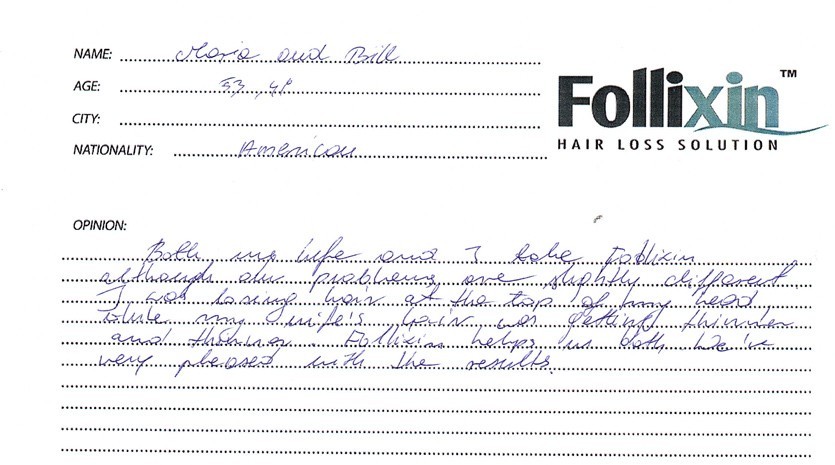 NAME: Maria and Bill
AGE: 53, 48
CITY:
NATIONALITY: American
Follixin™
HAIR LOSS SOLUTION
OPINION:
Both my wife and I take Follixin
although our problems are slightly different
I was losing hair at the top of my head
while my wife's hair was getting thinner
and thinner. Follixin helps us both. We're
very pleased with the results.